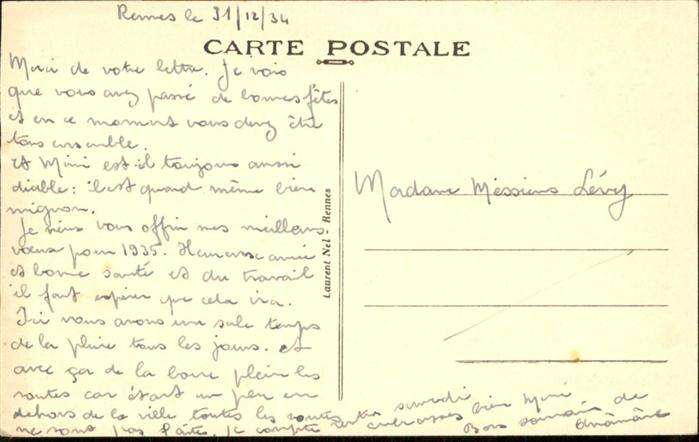 Rennes le 31/12/34
CARTE POSTALE
Merci de votre lettre. Je vois
que vous avez passé de bonnes fêtes
et en ce moment vous devez être
tous ensemble.
Et Mimi est-il toujours aussi
diable : il est quand même bien
mignon.
Je viens vous offrir mes meilleurs
vœux pour 1935. Heureuse année
et bonne santé et du travail
il faut espérer que cela ira.
Ici nous avons un sale temps
de la pluie tous les jours. et
avec ça de la boue plein les
routes car étant un peu en
dehors de la ville toutes les routes
ne sont pas faites. Je compte samedi
bien Mimi
Bons de
Madame Messieurs Lévy
Laurent Nel Rennes